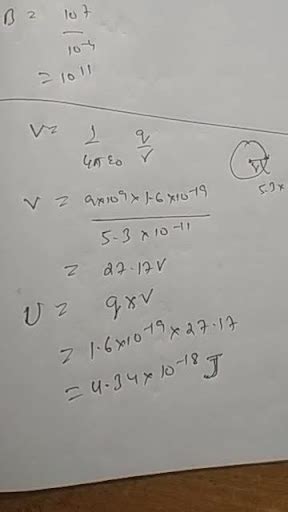 B = 10^7 / 10^-4
= 10^11
V = 1/4πε0 q/r
V = 9×10^9×1.6×10^-19 / 5.3×10^-11
= 27.17V
U = q×V
= 1.6×10^-19×27.17
= 4.34×10^-18 J
5.3×